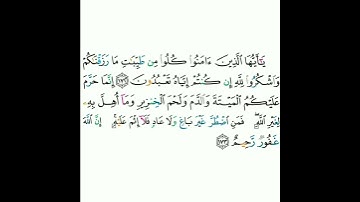 يَٰٓأَيُّهَا ٱلَّذِينَ ءَامَنُوا۟ كُلُوا۟ مِن طَيِّبَٰتِ مَا رَزَقْنَٰكُمْ
وَٱشْكُرُوا۟ لِلَّهِ إِن كُنتُمْ إِيَّاهُ تَعْبُدُونَ ١٧٢ إِنَّمَا حَرَّمَ
عَلَيْكُمُ ٱلْمَيْتَةَ وَٱلدَّمَ وَلَحْمَ ٱلْخِنزِيرِ وَمَآ أُهِلَّ بِهِۦ
لِغَيْرِ ٱللَّهِ فَمَنِ ٱضْطُرَّ غَيْرَ بَاغٍ وَلَا عَادٍ فَلَآ إِثْمَ عَلَيْهِ إِنَّ ٱللَّهَ
غَفُورٌ رَّحِيمٌ ١٧٣